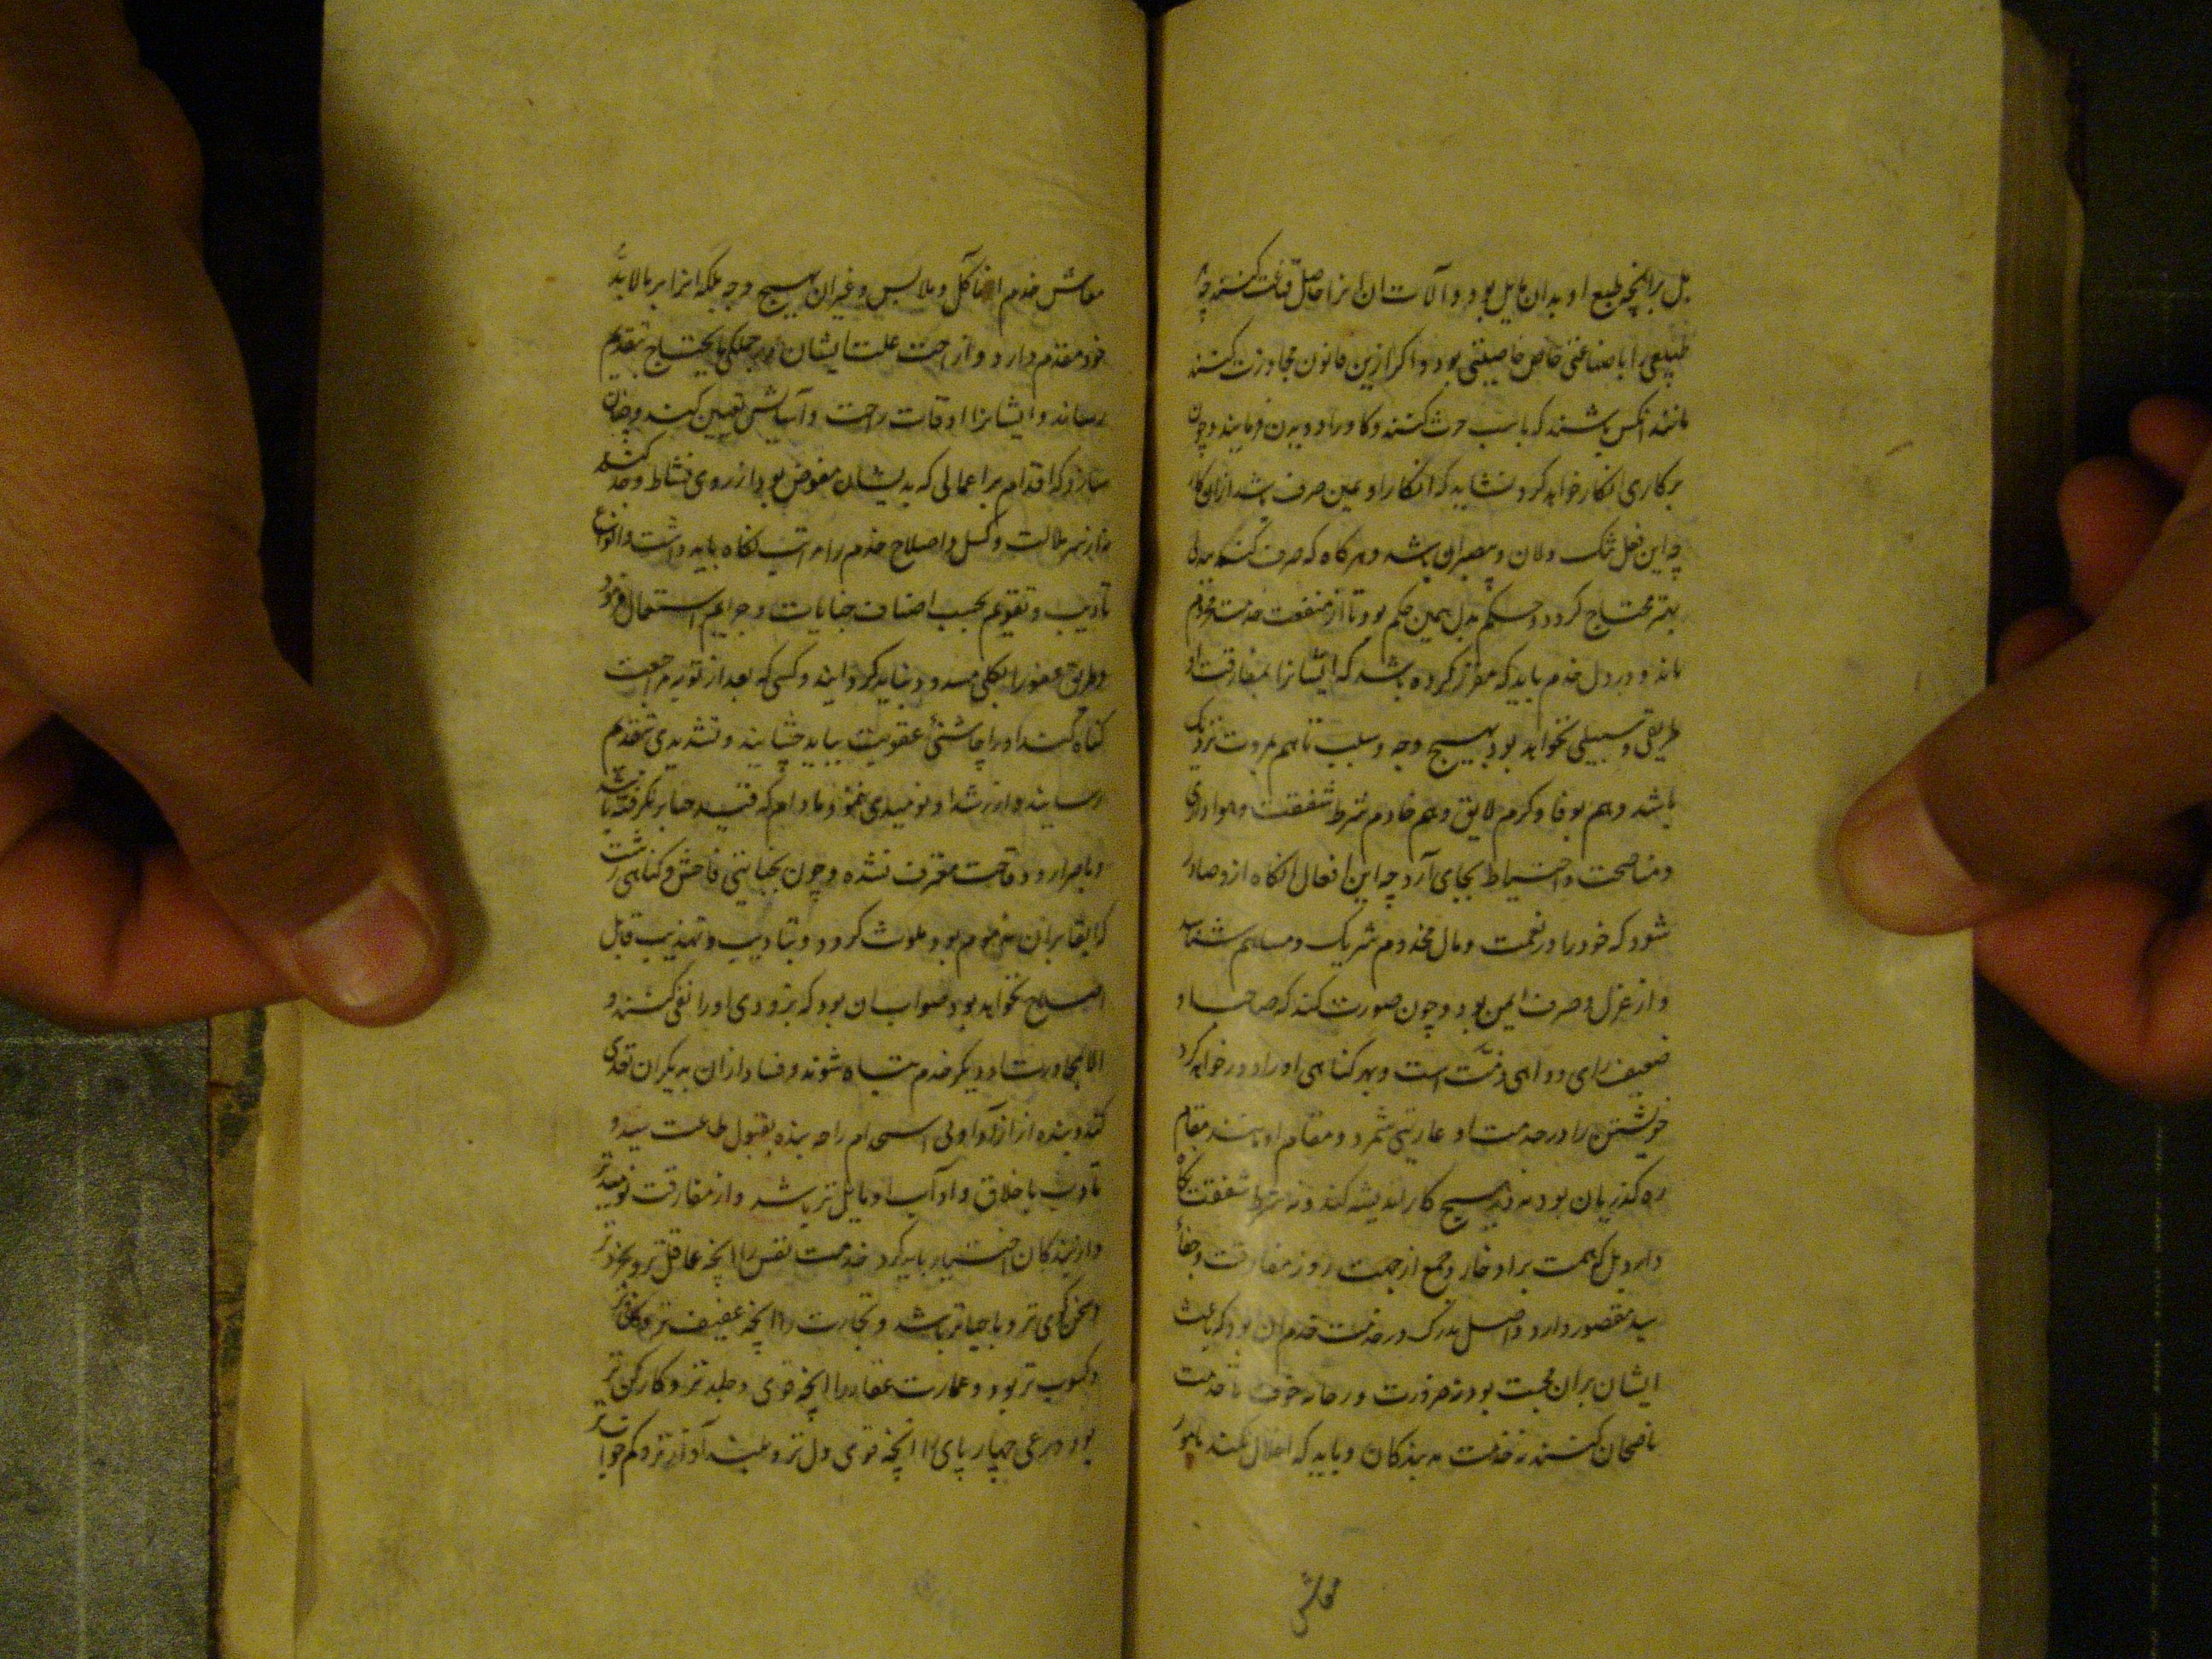 بل برانچه طبع او بدان مایل بود و آلات ان انرا حاصل قناعت کنند چه هر
طبیعی را با صناعتی خاص خاصیتی بود و اکر ازین قانون مجاوزت کنند
مانند انکس باشند که باسب حرث کنند و کاو را دویدن فرمایند و چون
بر کاری انکار خواهد کرد نشاید که انکار او عین صرف باشد ازان کار
چه این فعل تنک دلان و بی صبران باشد و هرکاه که صرف کنند ببدلی
بهتر محتاج کردد و حکم بدل همین حکم بود تا از منفعت خدمت محروم
ماند و در دل خدم باید که مقرر کرده باشد که ایشانرا بمفارقت او
طریقی و سبیلی نخواهد بود بهیچ وجه و سبب تا هم بمروت نزدیک
باشد و هم بوفا و کرم لایق و هم خادم شرط شفقت و هواداری
و مناصحت و احتیاط بجای آرد چه این افعال انکاه ازو صادر
شود که خود را در نعمت و مال مخدوم شریک و مساهم شناسد
و از عزل و صرف ایمن بود و چون صورت کند که صاحب او
ضعیف رای و واهی ذمت است و بهر کناهی او را دور خواهد کرد
خویشتن را در خدمت او عاریتی شمرد و مقام او مانند مقام
ره کذریان بود نه در هیچ کار اندیشه کند و نه شرط شفقت نکاه
دارد بل که همت بر ادخار و جمع از جهت روز مفارقت و جفای
سید مقصور دارد و اصل بزرک در خدمت خدم ان بود که باعث
ایشان بران محبت بود نه ضرورت و رجا نه خوف تا خدمت
ناصحان کنند نه خدمت بد بندکان و باید که اخلال نکند بامور
معاش
معاش خدم از ماکل و ملابس و غیر ان بهیچ وجه بلکه انرا بر مالابد
خود مقدم دارد و ازاحت علت ایشان در جملکی مایحتاج بتقدیم
رساند و ایشانرا اوقات راحت و آسایش تعیین کند و چنان
سازد که اقدام بر اعمالی که بدیشان مفوض بود از روی نشاط و جد کنند
نه از سر ملالت و کسل و اصلاح خدم را مراتب نکاه باید داشت و انواع
تادیب و تقویم بحسب اصناف جنایات و جرایم استعمال فرمود
و طریق عفو را بکلی مسدود نباید کردانید و کسی که بعد از توبه مراجعت
کناه کند او را چاشنی عقوبت بباید چشانید و تشدیدی بتقدیم
رسانید و از رشد او نومیدی ننمود مادام که قید حیا بر نکرفته باشد
و باصرار و وقاحت معترف نشده و چون بخیانتی فاحش و کناهی زشت
که ابقا بران مذموم بود ملوث کردد و بتادیب و تهذیب قابل
اصلاح نخواهد بود صواب ان بود که بزودی او را نفی کنند و
الا بمجاورت او دیکر خدم تباه شوند و فساد ازان بدیکران تعدی
کند و بنده از ازاد اولی استخدام را چه بنده بقبول طاعت سید و
تادب باخلاق و آداب او مایل تر باشد و از مفارقت نومیدتر
و از بندکان اختیار باید کرد خدمت نفس را انچه عاقل تر و بخردتر
و سخن کوی تر و با حیاتر باشد و تجارت را انچه عفیف تر و کافی تر
و کسوب تر بود و عمارت عقار را انچه قوی و جلدتر و کارکن تر
بود و رعی چهار پای را انچه قوی دل تر و بلند آواز تر و کم خواب تر